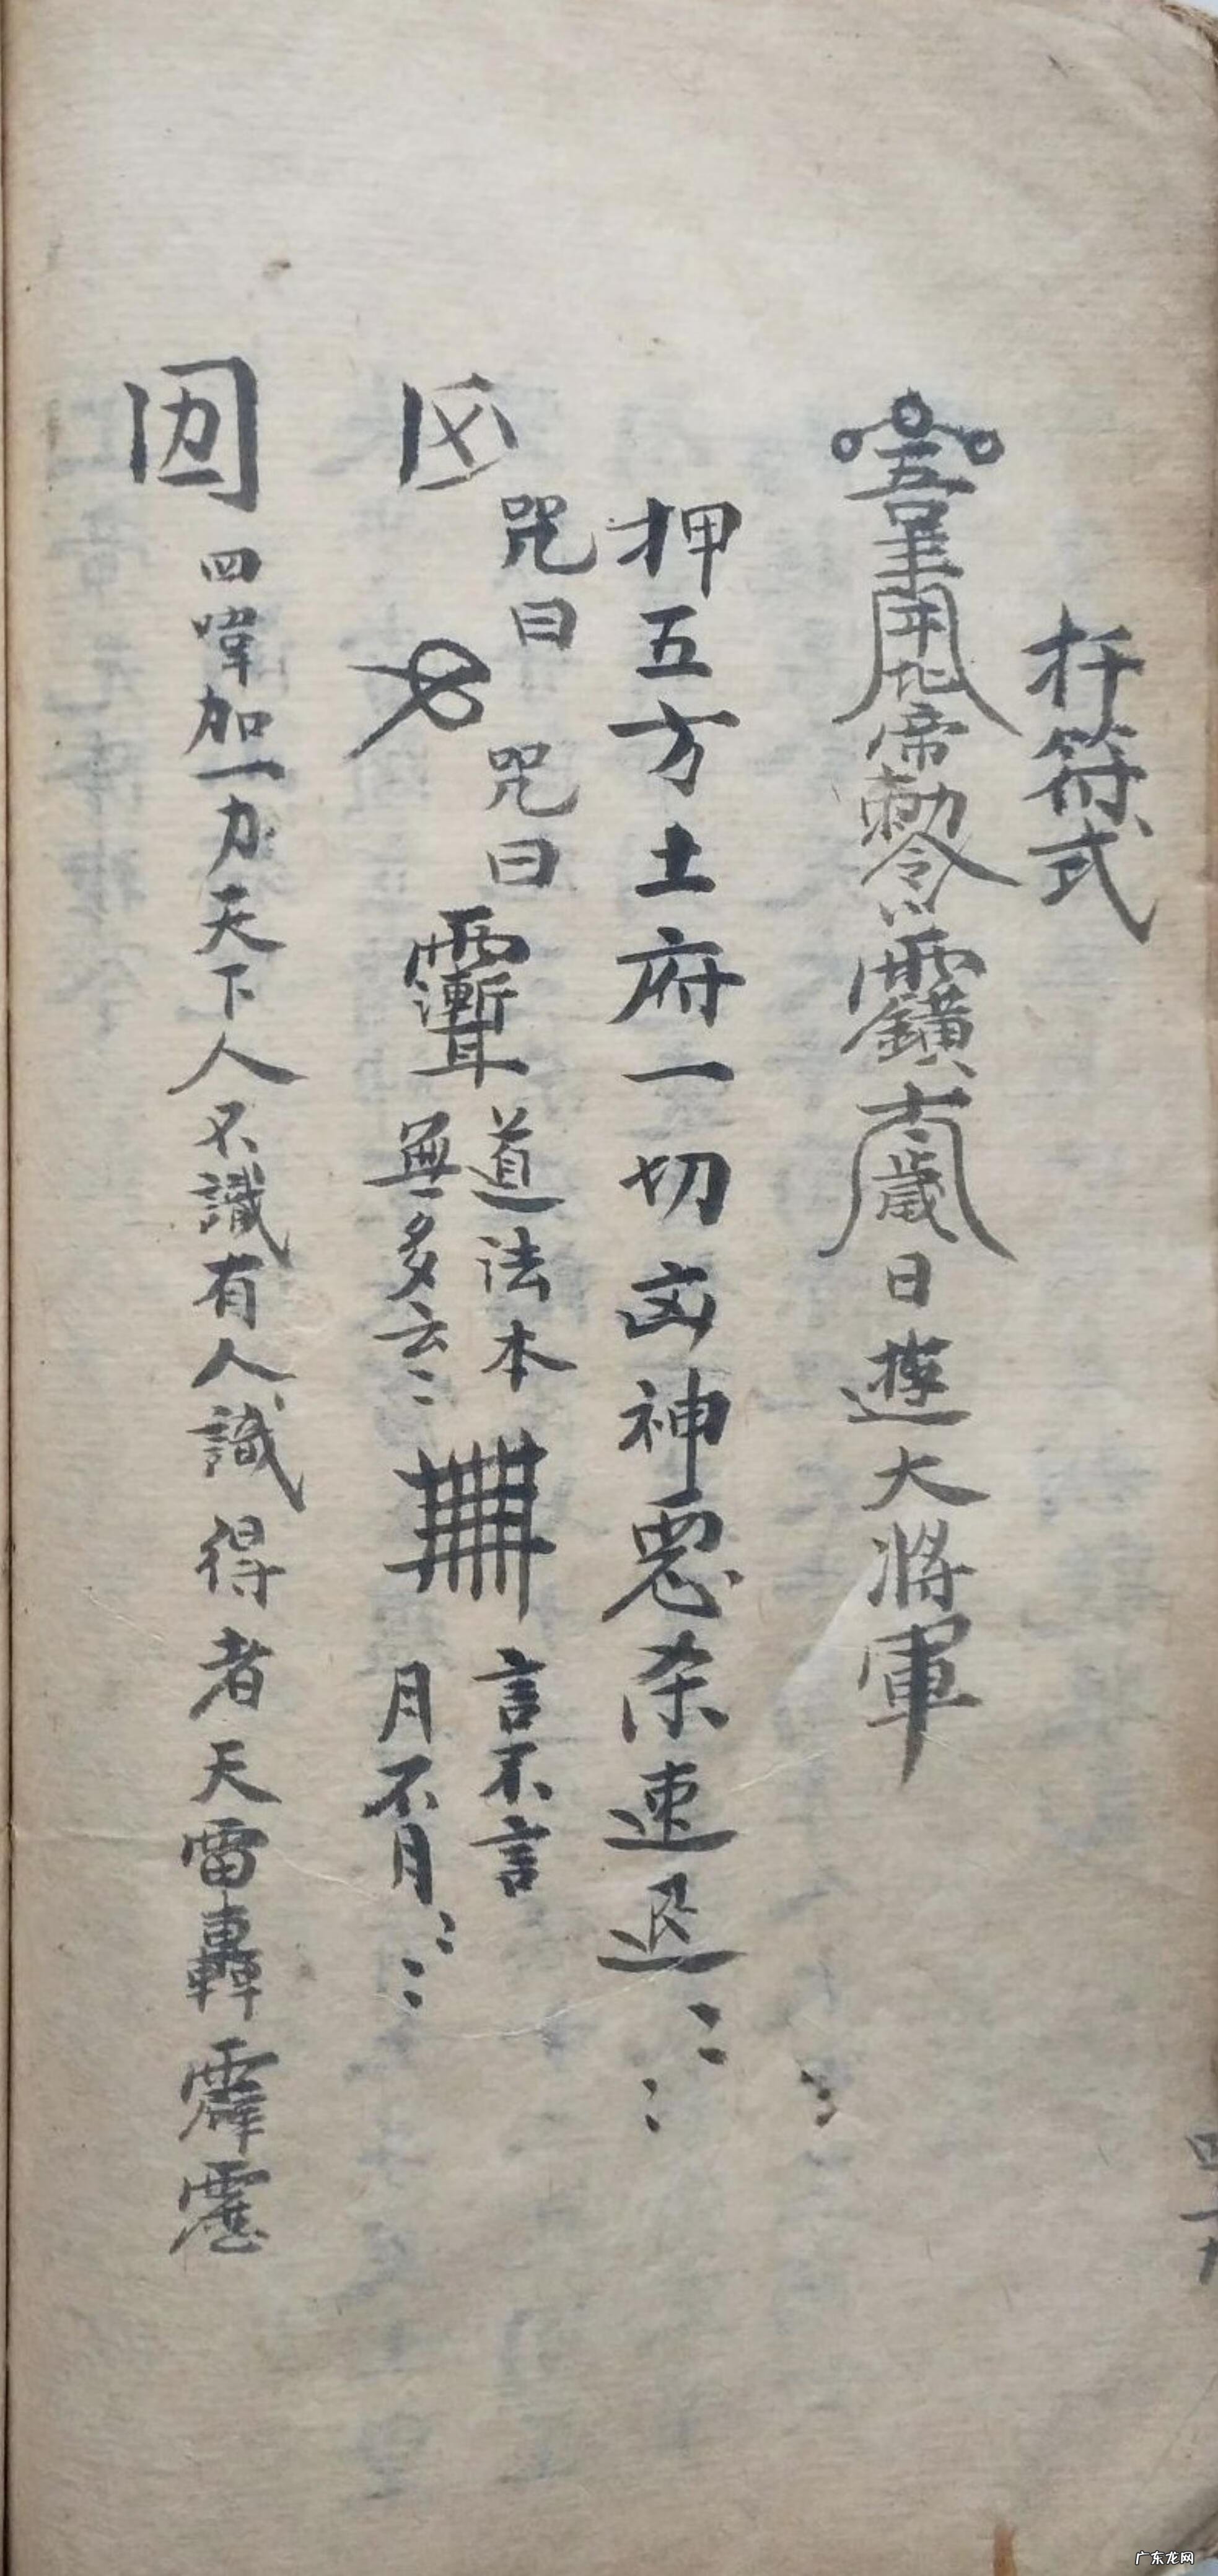 符式
吾奉
帝勅令
歲日遊大將軍
押五方土府一切凶神惡杀速退
咒曰
咒曰
道法本
無多云〻
言不言
月不月〻〻
四嗱加一力天下人不識有人識得者天雷轟霹靂
广东龙网